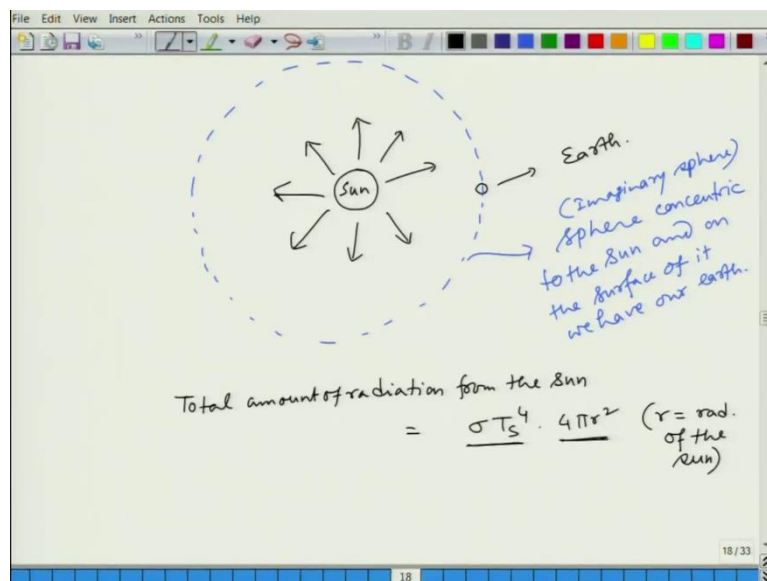 File Edit View Insert Actions Tools Help
B I
Sun
Earth.
(Imaginary sphere)
sphere concentric
to the Sun and on
the surface of it
we have our earth.
Total amount of radiation from the sun
= σ Ts⁴ · 4πr² (r = rad.
of the
sun)
18 / 33
18